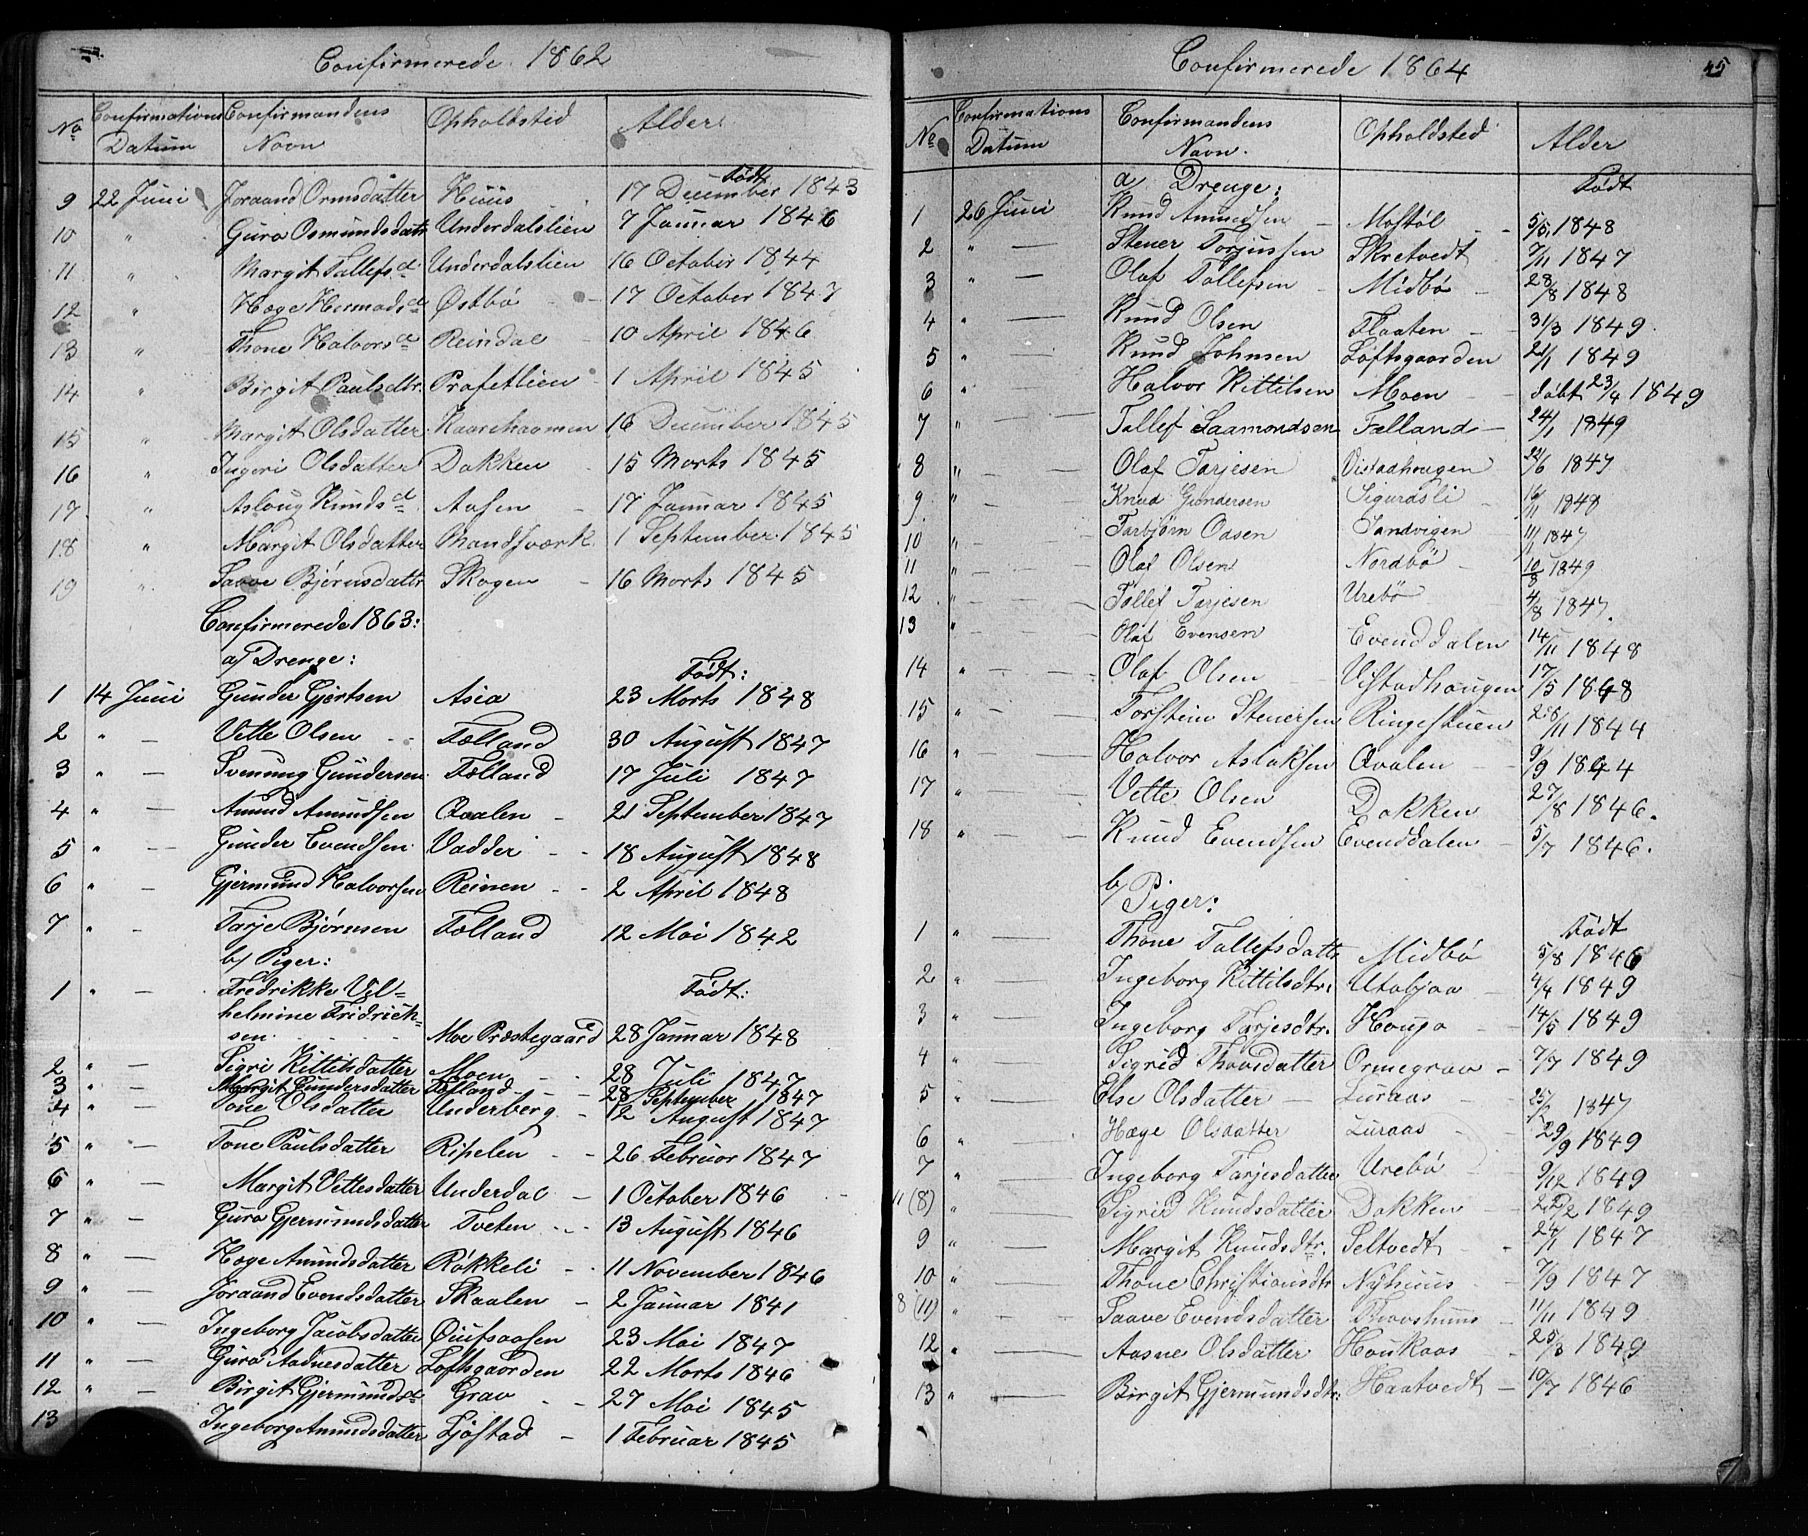 Confirmerede 1862
No Confirmations Datum Confirmandens Navn Opholdsted Alder
Født
9 22 Juni Joraand Ormsdatter Huus 17 December 1843
10 " Guro Osmundsdatr Underdalslien 7 Januar 1846
11 " Margit Tallefsd Underdalslien 16 October 1844
12 " Hæge Hermodsd Østbø 17 October 1847
13 " Thone Halvorsd Reindal 10 April 1846
14 " Birgit Paulsdtr. Præfetlien 1 April 1845
15 " Margit Olsdatter 16 December 1845
16 " Ingeri Olsdatter Dakken 15 Marts 1845
17 " Aslaug Knudsd Aasen 17 Januar 1845
18 " Margit Olsdatter Mandsværk 1 September 1845
19 " Saave Bjørnsdatter Skogen 16 Marts 1845
Confirmerede 1863:
a/ Drenge: Født:
1 14 Juni Gunder Gjertsen Asia 23 Marts 1848
2 " — Vetle Olsen Fælland 30 August 1847
3 " — Svenung Gundersen Fælland 17 Juli 1847
4 " — Amund Amundsen Qvalen 21 September 1847
5 " — Gunder Evendsen Vadder 18 August 1848
6 " — Gjermund Halvorsen Reinen 2 April 1848
7 " — Tarje Bjørnsen Fælland 12 Mai 1842
b/ Piger:
1 " — Fredrikke Vil= Født:
helmine Fridrich-
sen Moe Præstegaard 28 Januar 1848
2 " — Sigri Kittilsdatter Moen 28 Juli 1847
3 " — Margit Gundersdatter Fælland 28 September 1847
4 " — Tone Olsdatter Underberg 12 August 1847
5 " — Tone Paulsdatter Ripelen 26 Februar 1847
6 " — Margit Vetlesdatter Underdal 1 October 1846
7 " — Guro Gjermundsdatter Tveten 13 August 1846
8 " — Hæge Amundsdatter Røkkeli 11 November 1846
9 " — Joraand Evendsdatter Skaalen 2 Januar 1841
10 " — Ingeborg Jacobsdatter 23 Mai 1847
11 " — Guro Aadnesdatter Loftsgaarden 22 Marts 1846
12 " — Birgit Gjermundsd Grav 27 Mai 1845
13 Ingeborg Amundsdatter Ljøstad 1 Februar 1845
Confirmerede 1864
45
No Confirmations Datum Confirmandens Navn. Opholdsted Alder
a/ Drenge: Født
1 26 Juni Knud Amundsen Mostøl 5/5 1848
2 " — Stener Torjussen Skretvedt 7/11 1847
3 " — Olaf Tollefsen Midbø 28/8 1848
4 " — Knud Olsen Flaaten 31/3 1849
5 " — Knud Johnsen Loftsgaarden 21/1 1849
6 " — Halvor Kittilsen Moen døbt 23/4 1849
7 " — Tallef Saamondsen Fælland 24/1 1849
8 " — Olaf Tarjesen Vistadhougen 22/6 1847
9 " — Knud Gundersen Sigurdsli 16/11 1848
10 " — Tarbjørn Oasen Sandvigen 11/11 1847
11 " — Olaf Olsen Nordbø 10/8 1849
12 " — Tallef Tarjesen Urebø 4/8 1847
13 " — Olaf Evensen Evenddalen 14/11 1848
14 " — Olaf Olsen Vistadhaugen 17/5 1848
15 " — Torstein Stenersen Ringestuen 28/11 1844
16 " — Halvor Aslaksen Qvalen 9/9 1844
17 " — Vetle Olsen Dakken 27/8 1846.
18 " — Knud Evendsen Evenddalen 5/7 1846.
b/ Piger:
Født
1 " — Thone Tallefsdatter Midbø 5/8 1846
2 " — Ingeborg Kittilsdtr: Utabjaa 4/4 1849
3 " — Ingeborg Tarjesdtr. Houga 14/5 1849
4 " — Sigrid Thovsdatter Ormegrav 7/7 1849
5 " — Else Olsdatter Luraas 25/2 1847
6 " — Hæge Olsdatter Luraas 29/9 1849
7 " — Ingeborg Tarjesdatter Urebø 9/12 1849
11 (8) " — Sigrid Knudsdatter Dakken 22/2 1849
9 " — Margit Knudsdtr. Seltvedt 24/1 1847
10 " — Thone Christiansdtr Nyhuus 7/9 1847
8 (11) " — Saave Evendsdatter 11/11 1849
12 " — Aasne Olsdatter Houkaas 25/3 1849
13 " — Birgit Gjermundsdtr: Haatvedt 10/7 1846